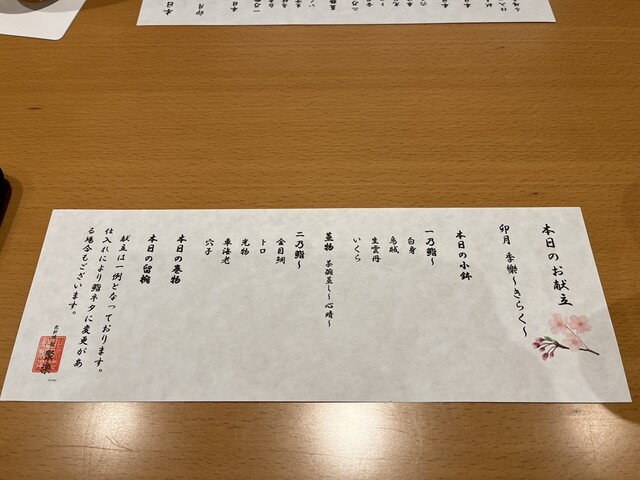 本日のお献立
卯月 季樂～きらく～
本日の小鉢
一乃鮨～
白身
烏賊
生雲丹
いくら
蒸物 茶碗蒸し～心晴～
二乃鮨～
金目鯛
トロ
光物
車海老
穴子
本日の巻物
本日の留椀
献立は一例となっております。
仕入れにより鮨ネタに変更があ
る場合もございます。